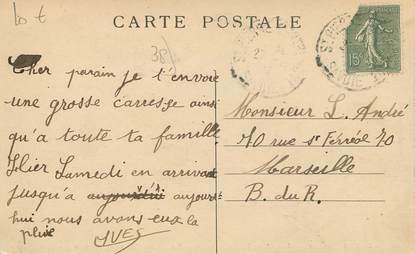 lo t
CARTE POSTALE
38
15c
Cher parain je t'envoie
une grosse caresse ainsi
qu'a toute ta famille
Lolier Samedi en arrivant
jusqu'a aujour
hui nous avons eux la
pluie YVES
Monsieur L. André
70 rue St Ferréol 70
Marseille
B. du R.